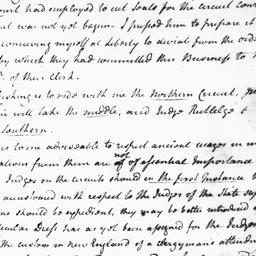 Court had employed to cut Seals for the circuit Courts
but was not yet begun. I pressed him to prepare it
conceiving myself at Liberty to deviate from the orde
by which they had committed this Business to
of their Clerk.
ushing is to ride with me the Northern Circuit,
in will take the middle, and Judge Rutledge &
Southern.
is some adviseable to respect ancient usages in m
ations from them are not of essential Importance
Judges on the circuits should in the first Instance
accustomed with respect to the Judges of the State sup
ons should be expedient, they may be better introduced a
icular Dress has as yet been assigned for the Judges
the custom in new England of a clergyman's attendin